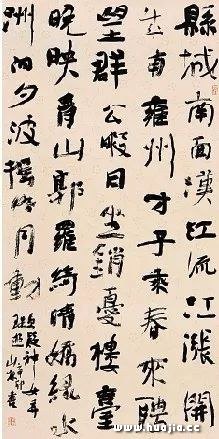 縣城南面漢江流江漲開
成南雍州才子乘春來騁
望群公暇日坐銷憂樓臺
晚映青山郭羅綺晴嬌綠水
洲向夕波搖明月動更疑神女弄
珠游辛卯
www.huajia.cc